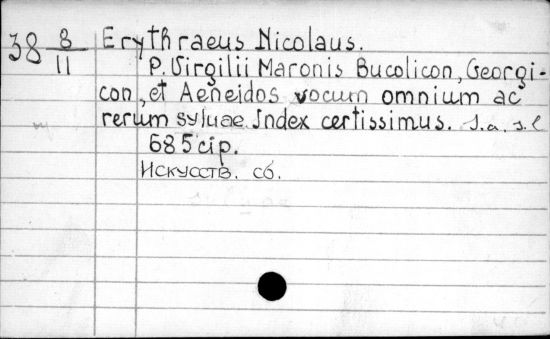 38 8/11
Erythraeus Nicolaus.
P. Virgilii Maronis Bucolicon, Georgi-
con, et Aeneidos vocum omnium ac
rerum syluae Index certissimus. S.a. s.l
685 стр.
Искусств. сб.